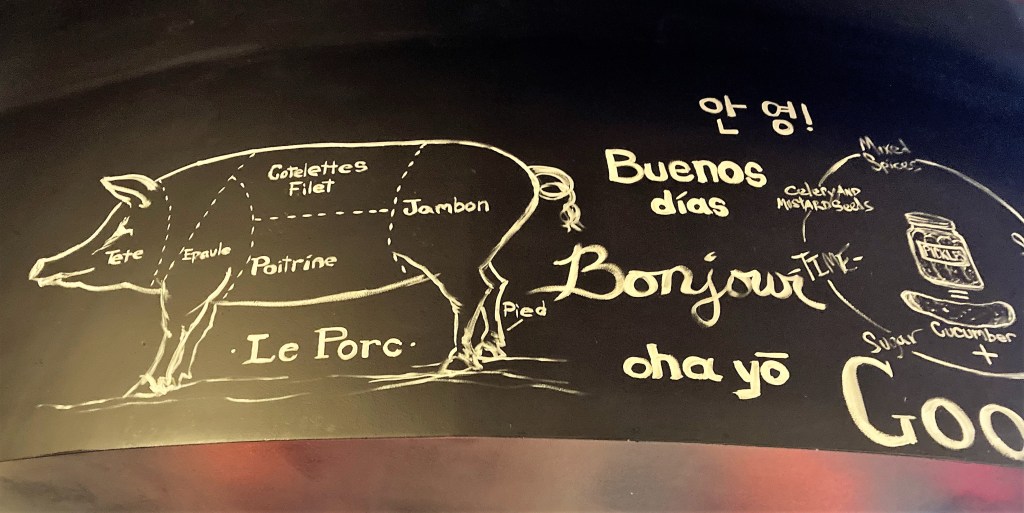 Cotelettes
Filet
Jambon
Tête
Epaule
Poitrine
Pied
· Le Porc ·
안 영!
Buenos
días
Bonjour
oha yō
Mixed
Spices
Celery AND
MUSTARD Seeds
TIME-
PICKLES
Sugar
Cucumber
+
Goo